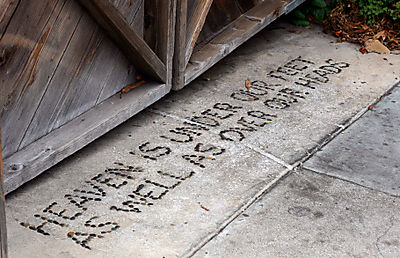 HEAVEN IS UNDER OUR FEET
AS WELL AS OVER OUR HEADS